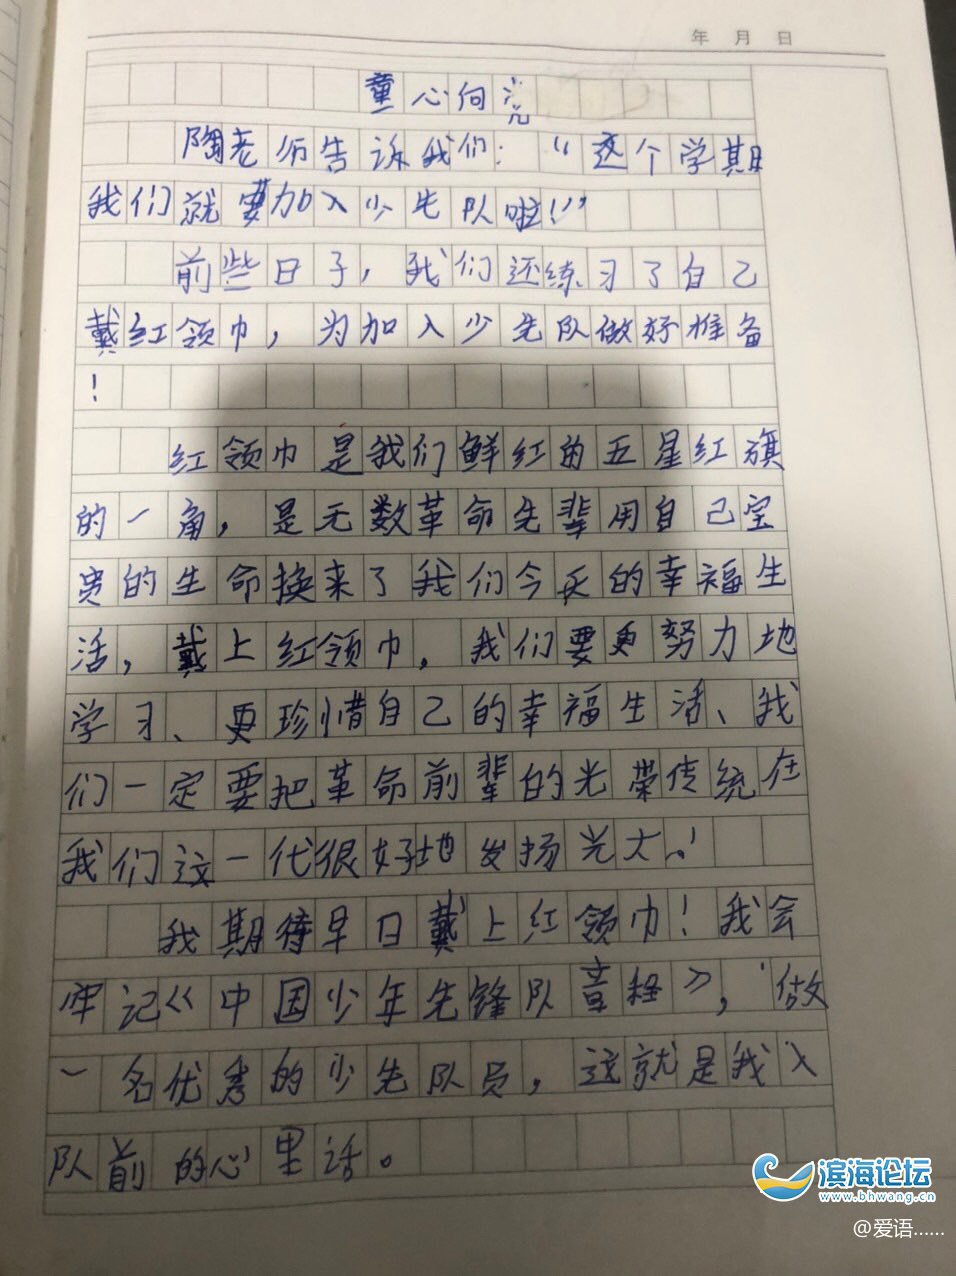 年 月 日
童心向党
陶老师告诉我们:“这个学期
我们就要加入少先队啦!”
前些日子,我们还练习了自己
戴红领巾,为加入少先队做好准备
!
红领巾是我们鲜红的五星红旗
的一角,是无数革命先辈用自己宝
贵的生命换来了我们今天的幸福生
活,戴上红领巾,我们要更努力地
学习、更珍惜自己的幸福生活、我
们一定要把革命前辈的光荣传统在
我们这一代很好地发扬光大。!
我期待早日戴上红领巾!我会
牢记《中国少年先锋队章程》,做
一名优秀的少先队员,这就是我入
队前的心里话。
滨海论坛
www.bhwang.cn
@爱语......